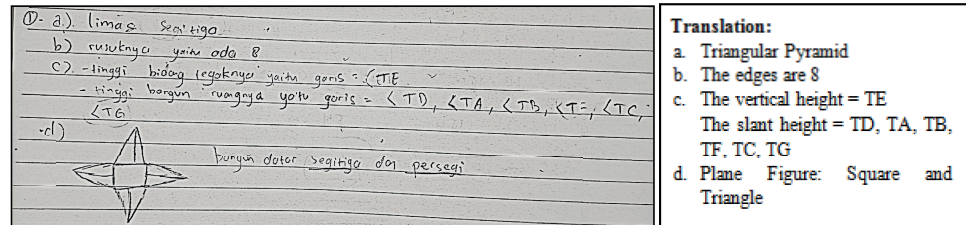 ①- a). limas segitiga
b) rusuknya yaitu ada 8
c). - tinggi bidang tegaknya yaitu garis = ∠TE
- tinggi bangun ruangnya yaitu garis = ∠TD, ∠TA, ∠TB, ∠TF, ∠TC,
∠TG
-d)
bangun datar segitiga dan persegi
Translation:
a. Triangular Pyramid
b. The edges are 8
c. The vertical height = TE
The slant height = TD, TA, TB,
TF, TC, TG
d. Plane Figure: Square and
Triangle